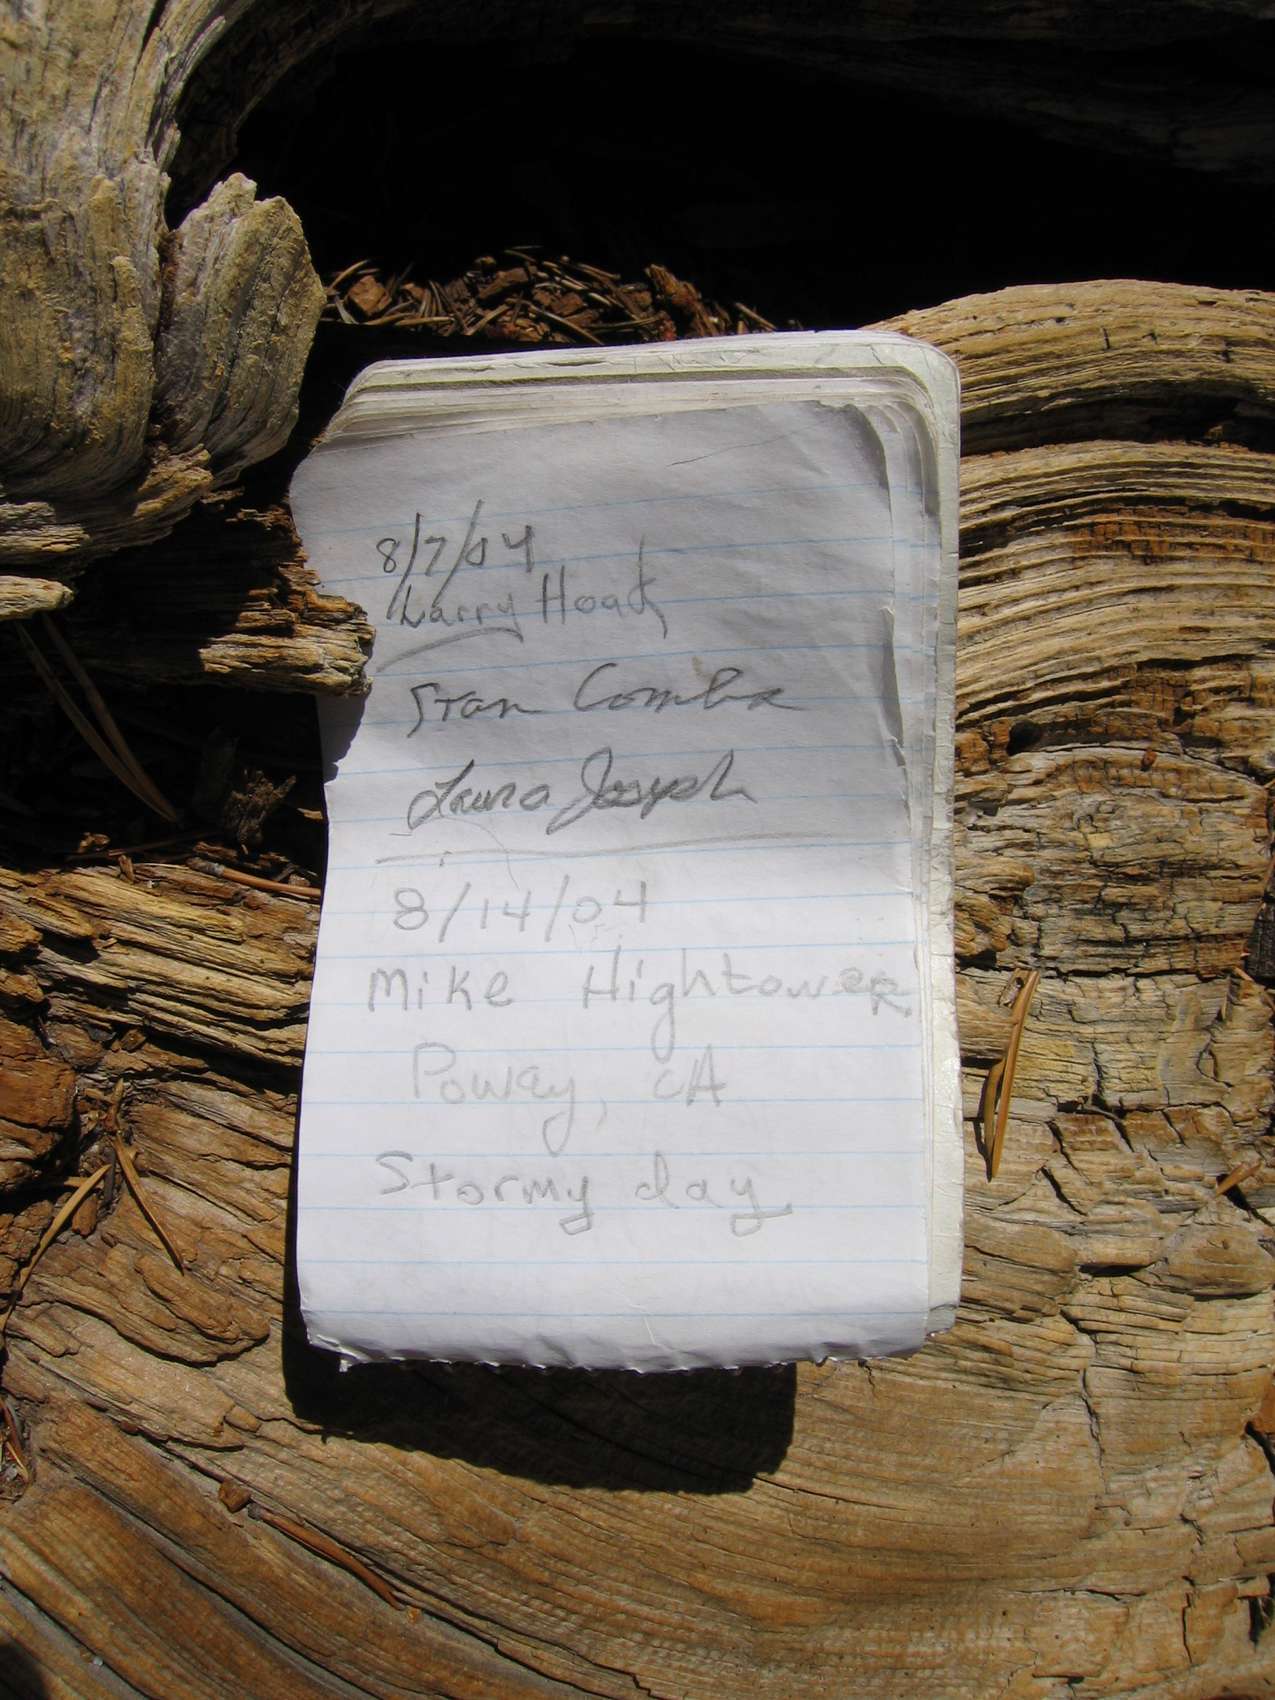 8/7/04
Larry Hoak
Stan
Laura Joseph
8/14/04
Mike Hightower
Poway, CA
Stormy day